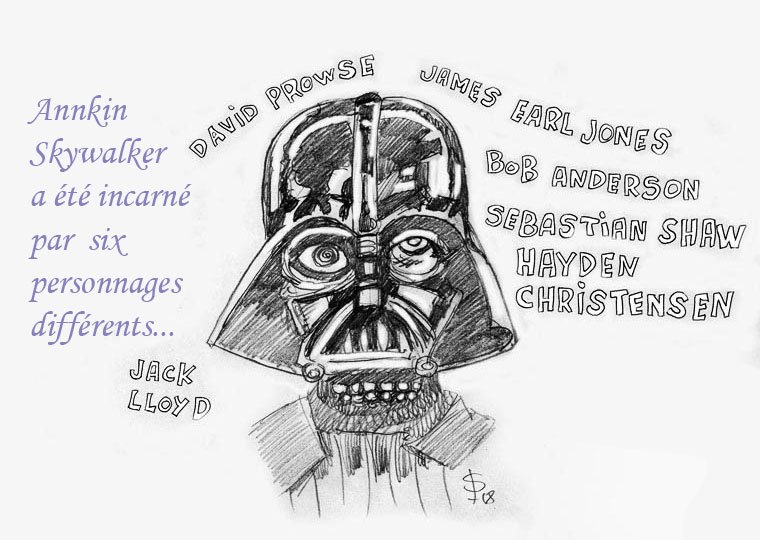 Annkin
Skywalker
a été incarné
par six
personnages
différents...
DAVID PROWSE
JAMES EARL JONES
BOB ANDERSON
SEBASTIAN SHAW
HAYDEN
CHRISTENSEN
JACK
LLOYD